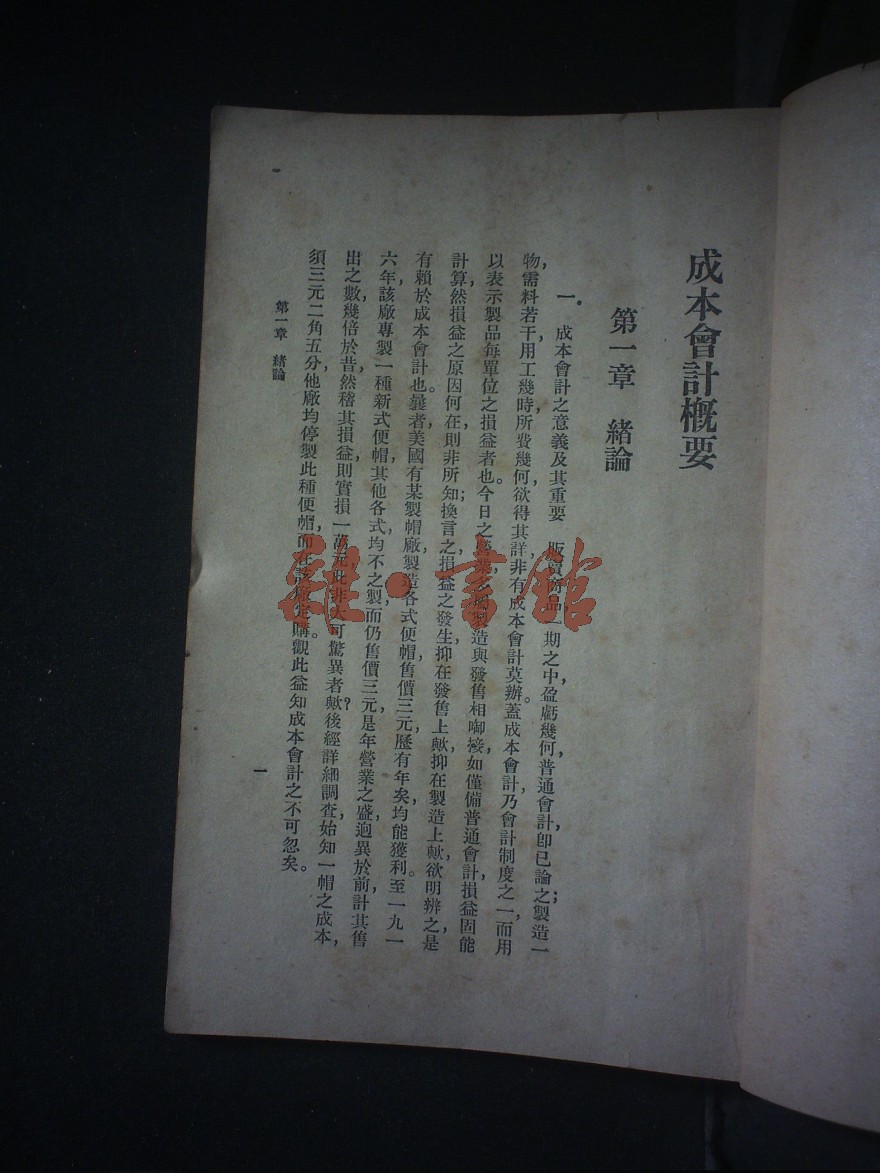 成本會計概要
第一章　緒論
一．成本會計之意義及其重要　販賣商品，一期之中，盈虧幾何，普通會計，卽已論之；製造一
物，需料若干，用工幾時，所費幾何，欲得其詳，非有成本會計莫辦。蓋成本會計，乃會計制度之一，而用
以表示製品每單位之損益者也。今日之營業，多將製造與發售相啣接，如僅備普通會計，損益固能
計算，然損益之原因何在，則非所知；換言之，損益之發生，抑在發售上歟，抑在製造上歟，欲明辨之，是
有賴於成本會計也。曩者美國有某製帽廠，製造各式便帽，售價三元，歷有年矣，均能獲利。至一九一
六年，該廠專製一種新式便帽，其他各式，均不之製，而仍售價三元，是年營業之盛，迥異於前，計其售
出之數，幾倍於昔，然稽其損益，則實損一萬元，此非大可驚異者歟？後經詳細調查，始知一帽之成本，
須三元二角五分，他廠均停製此種便帽，而在該廠定購。觀此益知成本會計之不可忽矣。
第一章　緒論
一
雜·書館